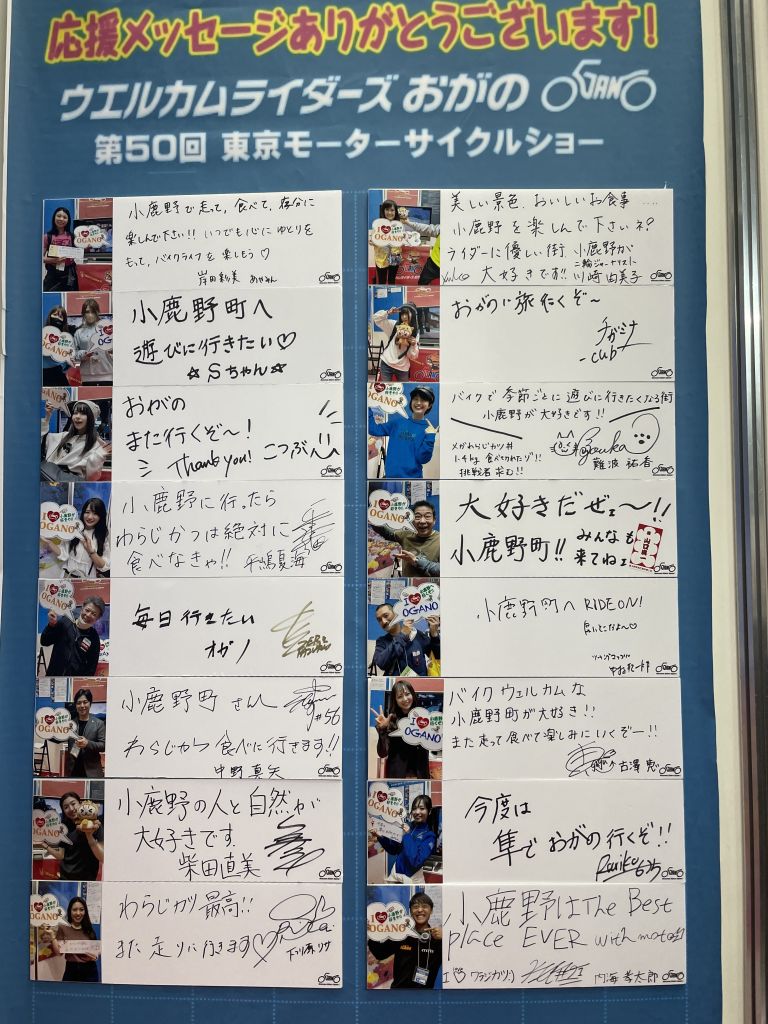 応援メッセージありがとうございます!
ウエルカムライダーズ おがの OGANO
第50回 東京モーターサイクルショー
小鹿野で走って、食べて、存分に
楽しんで下さい!! いつでも心にゆとりを
もって、バイクライフを楽しもう♡
I ♥ OGANO
小鹿野町へ
遊びに行きたい♡
☆Sちゃん☆
OGANO
おがの
また行くぞ〜!
Thank you! こつぶ
OGANO
小鹿野に行ったら
わらじかつは絶対に
食べなきゃ!! 平嶋夏海
OGANO
毎日行きたい
オガノ
OGANO
小鹿野町さん
#56
わらじかつ食べに行きます!!
中野真矢
OGANO
小鹿野の人と自然が
大好きです
柴田直美
OGANO
わらじカツ最高!!
また走りに行きます♡
OGANO
美しい景色、おいしいお食事.....
小鹿野を楽しんで下さいネ?
ライダーに優しい街 小鹿野が
二輪ジャーナリスト
大好きです!! 川崎由美子
OGANO
おがのに旅行くぞ〜
チガミナ
-cub
バイクで季節ごとに遊びに行きたくなる街
小鹿野が大好きです!!
メガわらじカツ丼
1.4kg 食べ切れたゾ!!
挑戦者求む!!
難波祐香
OGANO
大好きだぜェ〜!!
小鹿野町!! みんなも
来てねェ
OGANO
小鹿野町へ RIDE ON!
OGANO
バイクウェルカムな
小鹿野町が大好き!!
また走って食べて楽しみにいくぞー!!
古澤恵
OGANO
今度は
隼でおがの行くぞ!!
OGANO
小鹿野は The Best
place EVER with moto!!
I ♡ ワラジカツ:) 内海孝太郎
OGANO